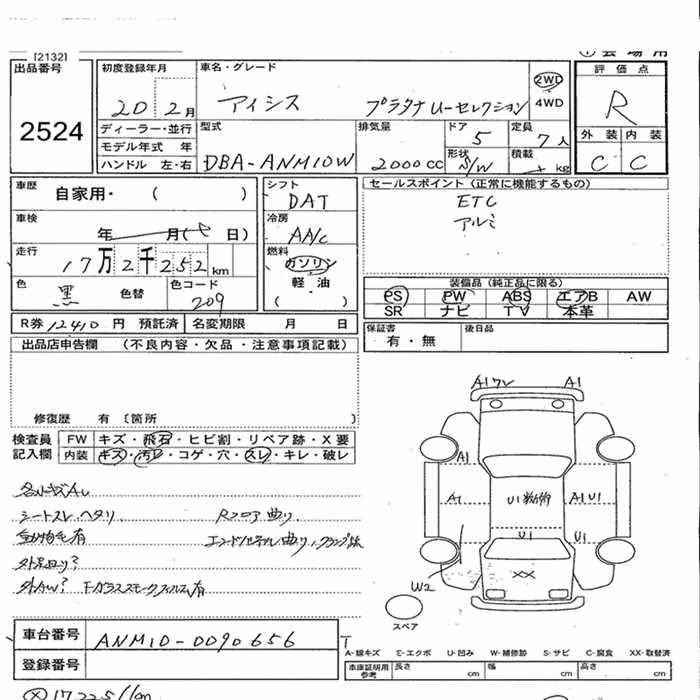 [2132]
出品番号
2524
初度登録年月
20 2月
車名・グレード
アイシス プラタナ U-セレクション
2WD
4WD
評価点
R
ディーラー・並行
モデル年式 年
ハンドル 左・右
型式
DBA-ANM10W
排気量
2000cc
ドア
5
形状
S/W
定員
7人
積載
kg
外装 内装
C C
車歴
自家用・ ( )
車検
年 月( 日)
走行
17万2千252km
色
黒 色替
色コード
209
シフト
DAT
冷房
AA/c
燃料
ガソリン
軽・油
( )
セールスポイント(正常に機能するもの)
ETC
アルミ
装備品(純正品に限る)
PS PW ABS エアB AW
SR ナビ TV 本革
R券 12410 円 預託済 名変期限 月 日
保証書
有・無
後日品
出品店申告欄 (不良内容・欠品・注意事項記載)
修復歴 有 〔箇所
検査員
記入欄
FW キズ・飛石・ヒビ割・リペア跡・X要
内装 キズ・汚レ・コゲ・穴・スレ・キレ・破レ
シートスレ.ヘタリ.
Rフロア曲り.
動物毛有
外AW? Fガラススモークフィルム有
A1 A1
A1
A1 U1 A1 U1
U1 U1
W2
XX
スペア
車台番号
ANM10-0090656
登録番号
A-線キズ E-エクボ U-凹み W-補修跡 S-サビ C-腐食 XX-取替済
車庫証明用
参考
長さ cm 幅 cm 高さ cm